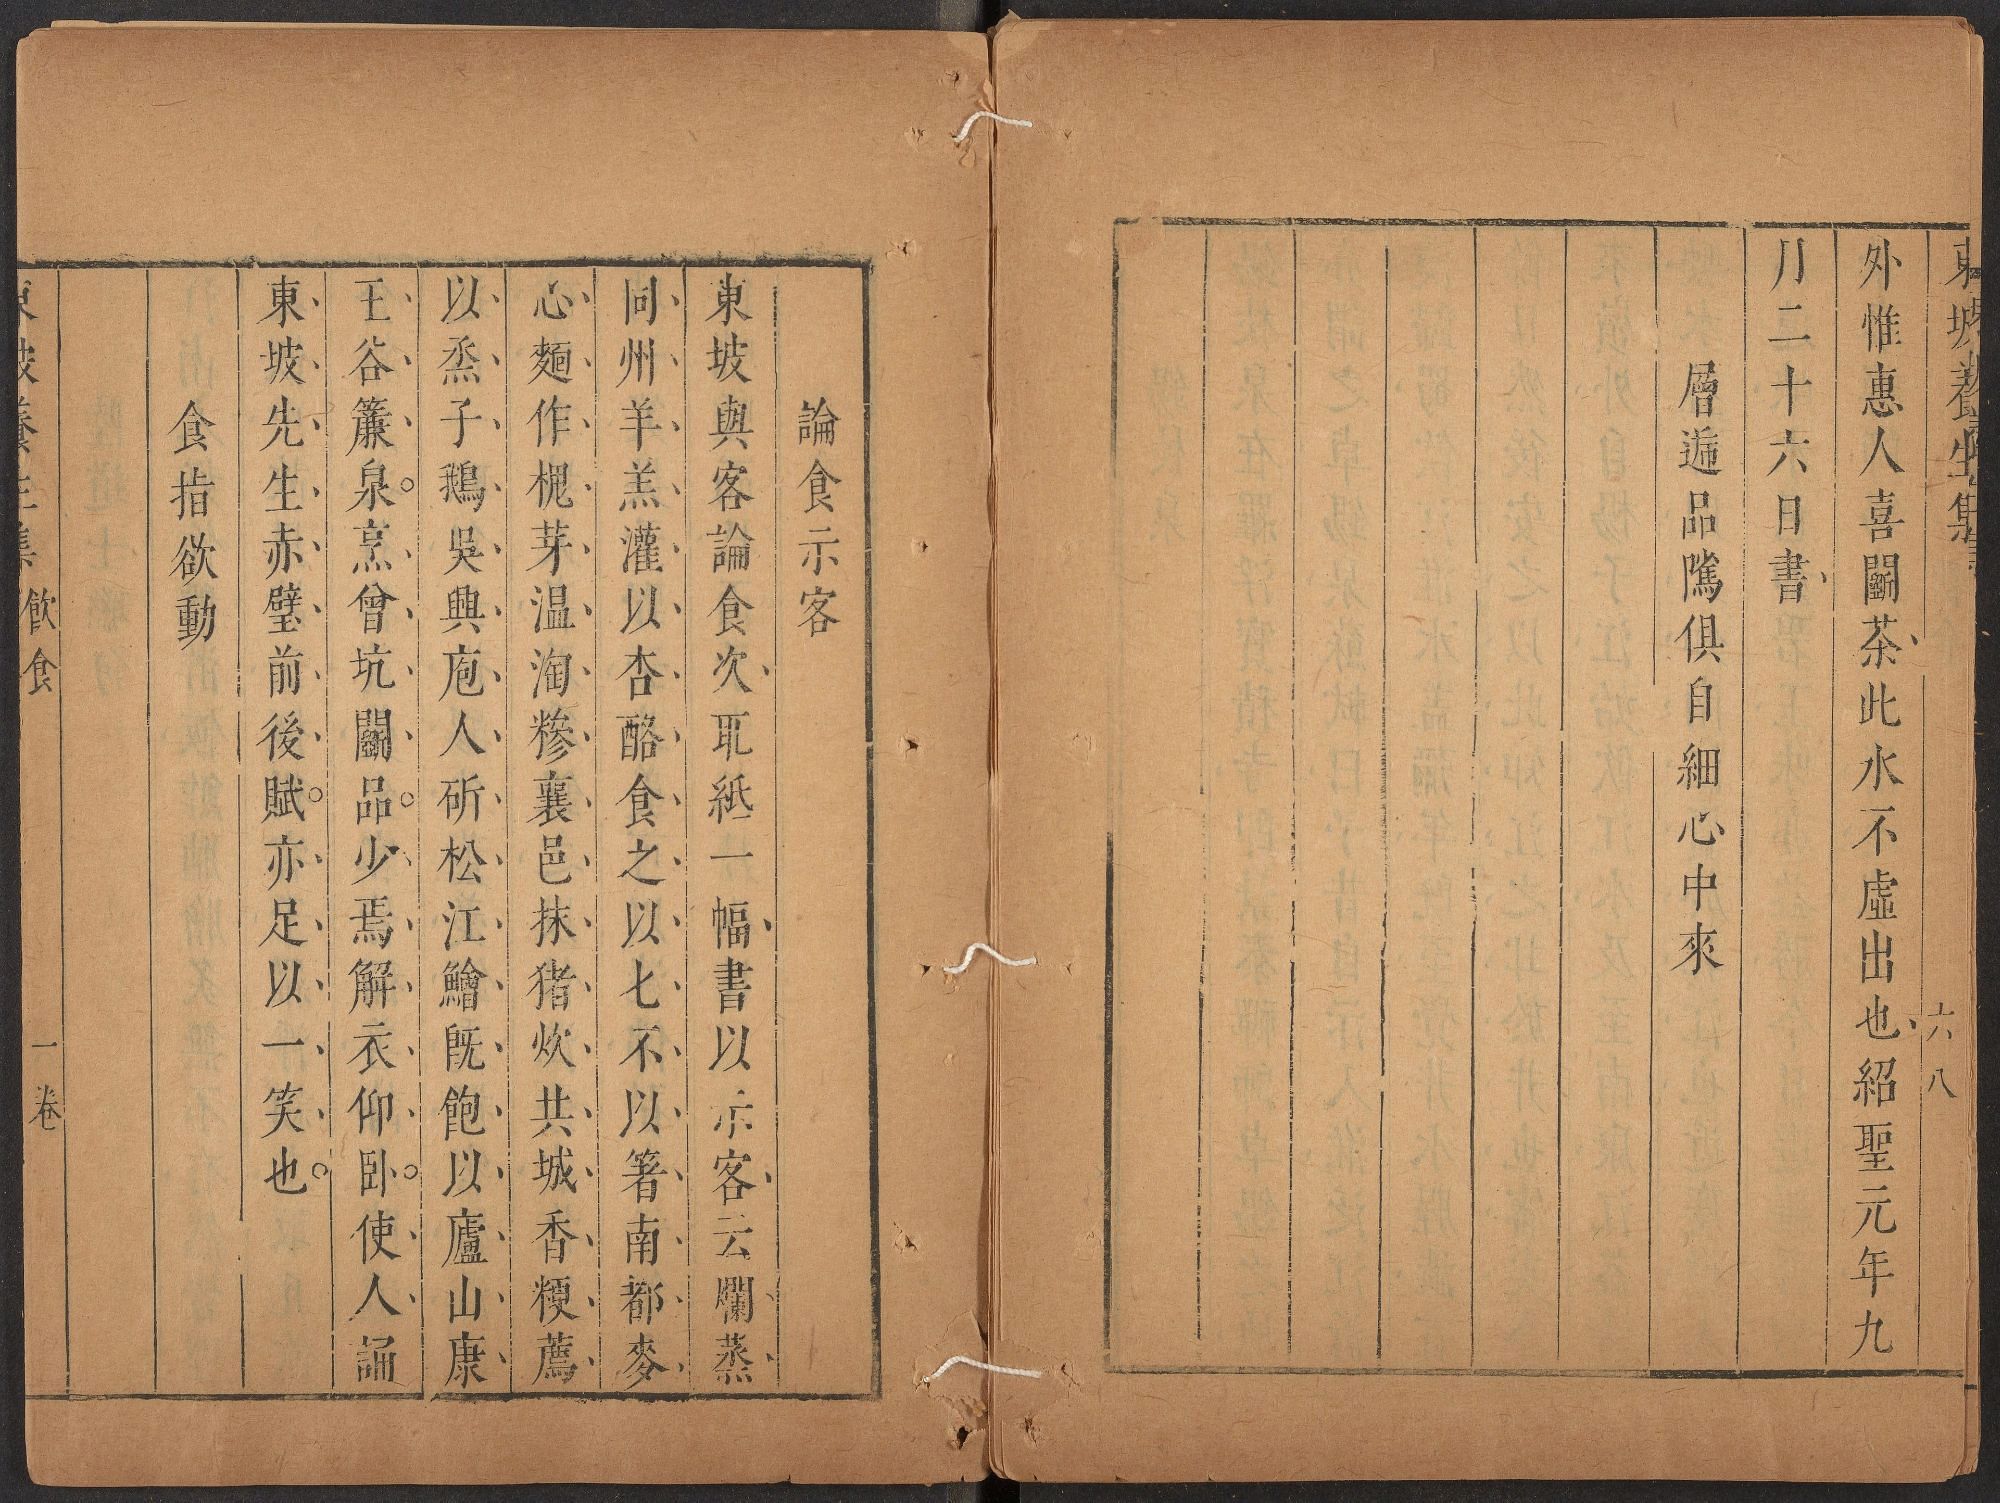 東坡養生集
六八
外惟惠人喜鬭茶此水不虛出也紹聖元年九
月二十六日書
層遞品隲俱自細心中來
論食示客
東坡與客論食次取紙一幅書以示客云爛蒸
同州羊羔灌以杏酪食之以七不以箸南都麥
心麵作槐芽温淘糝襄邑抹猪炊共城香粳薦
以烝子鵝吳興庖人斫松江鱠既飽以廬山康
王谷簾泉烹曾坑鬭品少焉解衣仰卧使人誦
東坡先生赤壁前後賦亦足以一笑也
食指欲動
東坡養生集
飲食
一卷